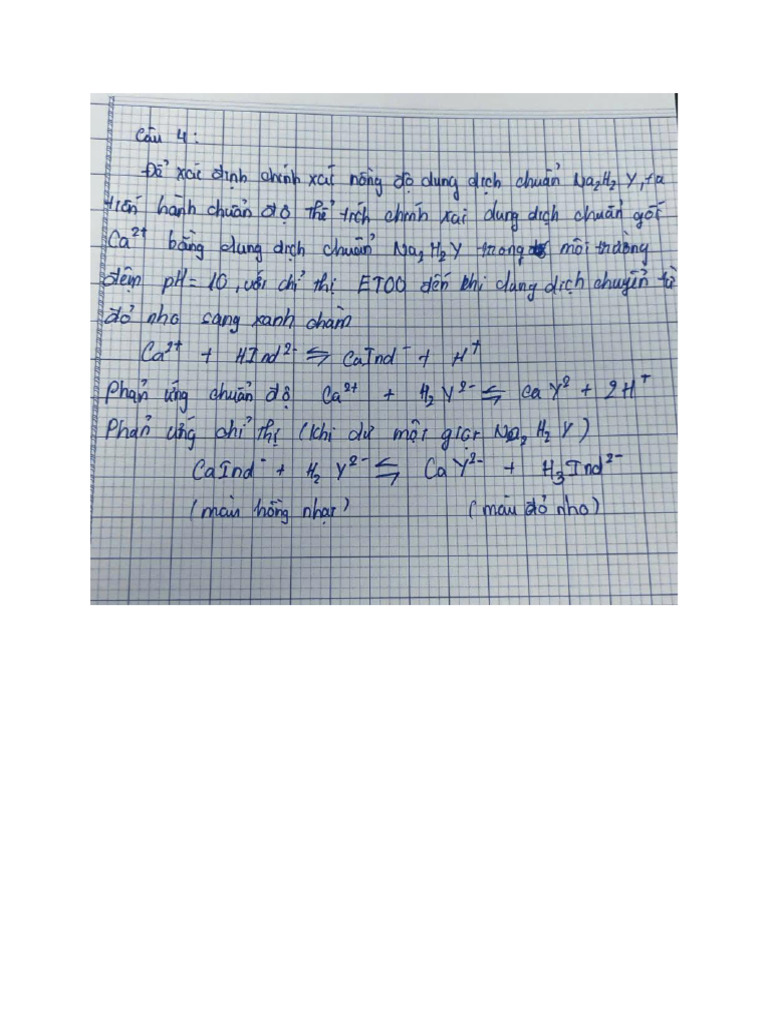 Câu 4:
Để xác định chính xác nồng độ dung dịch chuẩn Na₂H₂Y, ta
tiến hành chuẩn độ thể tích chính xác dung dịch chuẩn gốc
Ca²⁺ bằng dung dịch chuẩn Na₂H₂Y trong môi trường
đệm pH = 10, với chỉ thị ETOO đến khi dung dịch chuyển từ
đỏ nho sang xanh chàm
Ca²⁺ + HInd²⁻ ⇌ CaInd⁻ + H⁺
Phản ứng chuẩn độ Ca²⁺ + H₂Y²⁻ ⇌ CaY² + 2H⁺
Phản ứng chỉ thị (khi dư một giọt Na₂H₂Y)
CaInd⁻ + H₂Y²⁻ ⇌ CaY²⁻ + H₃Ind²⁻
(màu hồng nhạt) (màu đỏ nho)